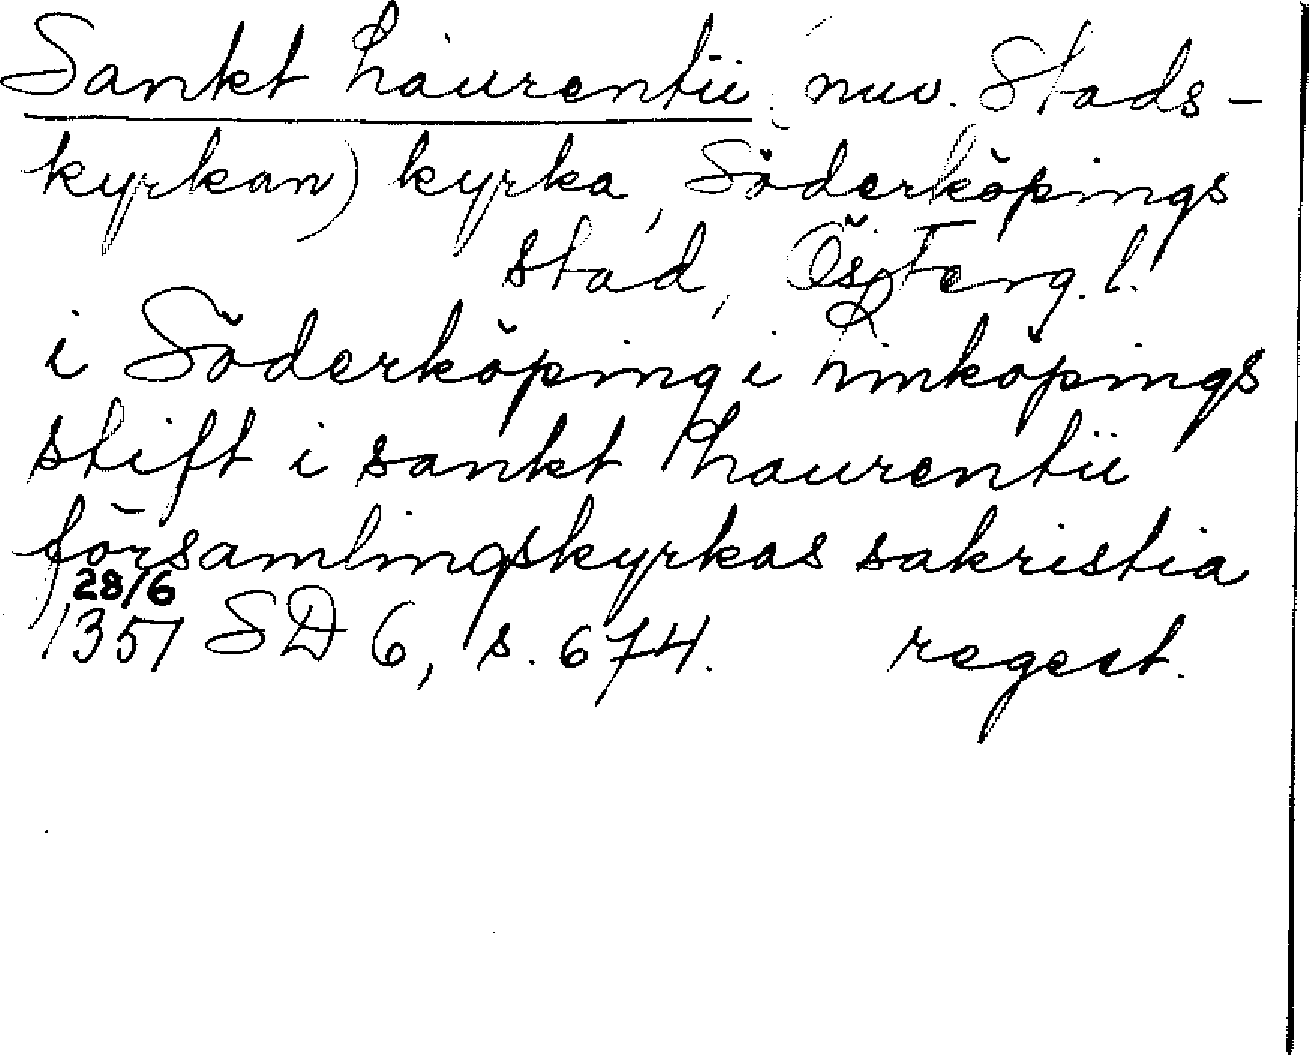 Sankt Laurentii (nuv. Stads-
kyrkan) kyrka, Söderköpings
stad, Österg. l.
i Söderköping i Linköpings
stift i sankt Laurentii
församlingskyrkas sakristia
28/6
1357 SD 6, s. 674. regest.